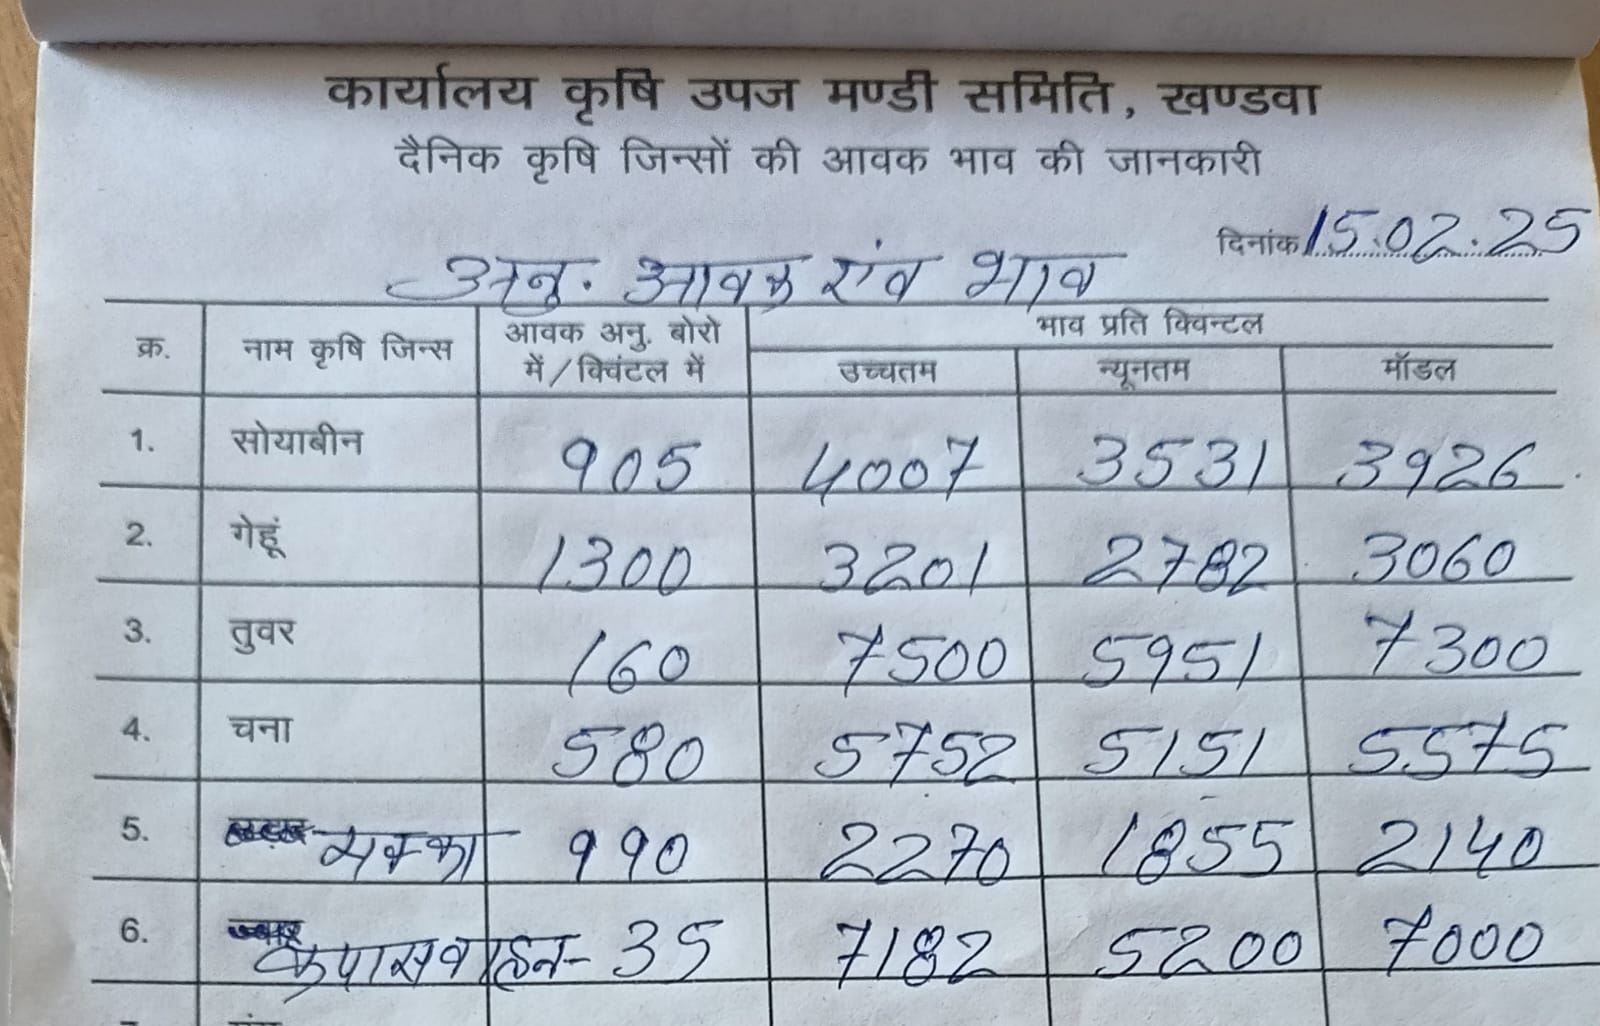 कार्यालय कृषि उपज मण्डी समिति, खण्डवा
दैनिक कृषि जिन्सों की आवक भाव की जानकारी
दिनांक 15.02.25
अनु. आवक एंव भाव
क्र. नाम कृषि जिन्स आवक अनु. बोरो में/क्विंटल में भाव प्रति क्विन्टल
उच्चतम न्यूनतम मॉडल
1. सोयाबीन 905 4007 3531 3926
2. गेहूं 1300 3201 2782 3060
3. तुवर 160 7500 5951 7300
4. चना 580 5752 5151 5575
5. मक्का 990 2270 1855 2140
6. ज्वार कपास वाहन- 35 7182 5200 7000